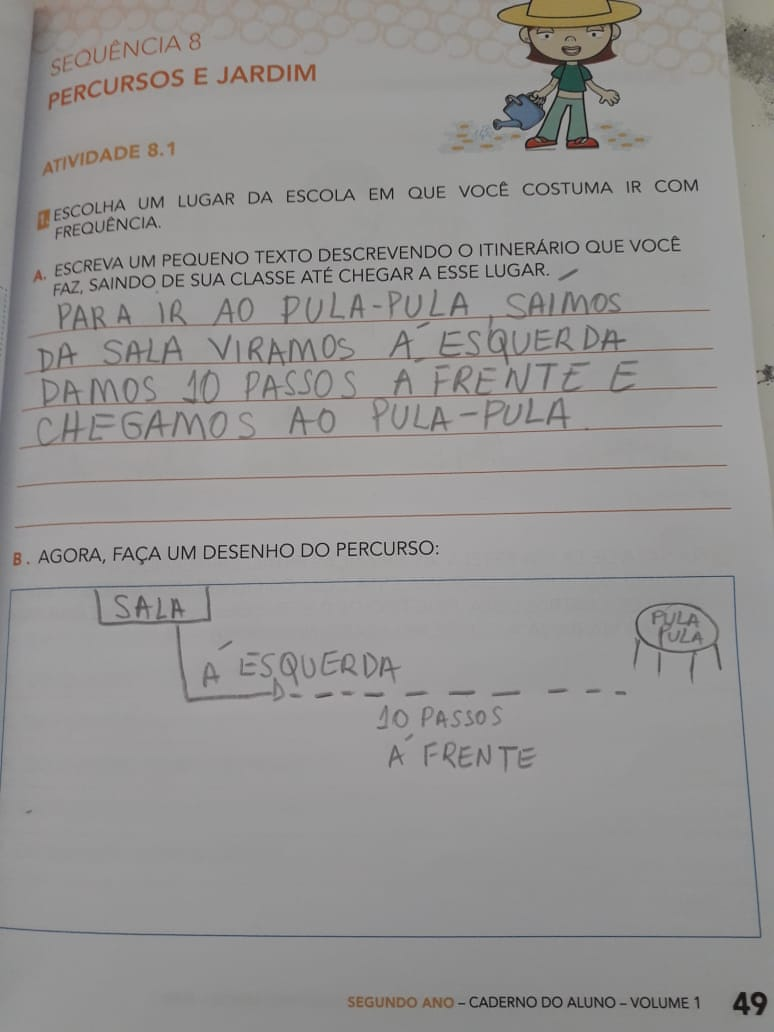 SEQUÊNCIA 8
PERCURSOS E JARDIM
ATIVIDADE 8.1
1. ESCOLHA UM LUGAR DA ESCOLA EM QUE VOCÊ COSTUMA IR COM
FREQUÊNCIA.
A. ESCREVA UM PEQUENO TEXTO DESCREVENDO O ITINERÁRIO QUE VOCÊ
FAZ, SAINDO DE SUA CLASSE ATÉ CHEGAR A ESSE LUGAR.
PARA IR AO PULA-PULA, SAÍMOS
DA SALA VIRAMOS Á ESQUERDA
DAMOS 10 PASSOS Á FRENTE E
CHEGAMOS AO PULA-PULA.
B. AGORA, FAÇA UM DESENHO DO PERCURSO:
SALA
PULA
PULA
Á ESQUERDA
10 PASSOS
Á FRENTE
SEGUNDO ANO – CADERNO DO ALUNO – VOLUME 1 49